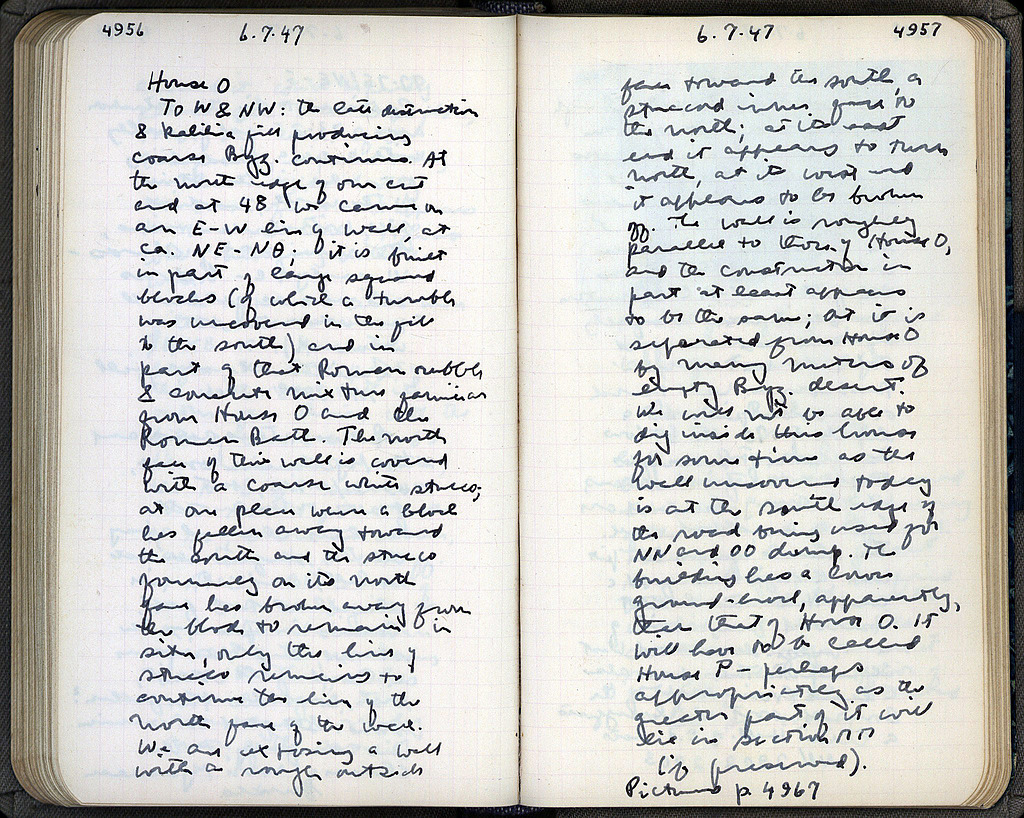 4956
6.7.47
House O
To W & NW: the late destruction
& kalibia fill producing
coarse Byz. continues. At
the north edge of our cut
and at 48 we came on
an E-W line of wall, at
ca. NE-NΘ; it is built
in part of large squared
blocks (of which a tumble
was uncovered in the fill
to the south) and in
part of that Roman rubble
& concrete mixture familiar
from House O and the
Roman Bath. The north
face of this wall is covered
with a coarse white stucco;
at one place where a block
has fallen away toward
the south and the stucco
formerly on its north
face has broken away from
the block to remain in
situ, only the line of
stucco remains to
continue the line of the
north face of the wall.
We are exposing a wall
with a rough outside
6.7.47
4957
face toward the south, a
stuccoed inner face to
the north; at its east
end it appears to turn
north, at its west end
it appears to be broken
off. The wall is roughly
parallel to those of House O,
and the construction in
part at least appears
to be the same; but it is
separated from House O
by many meters of
empty Byz. desert.
We will not be able to
dig inside this house
for some time as the
wall uncovered today
is at the south edge of
the road being used for
NN and OO dump. The
building has a lower
ground-level, apparently,
than that of House O. It
will have to be called
House P – perhaps
appropriately as the
greater part of it will
lie in section ΠΠ
(if preserved).
Pictures p. 4967